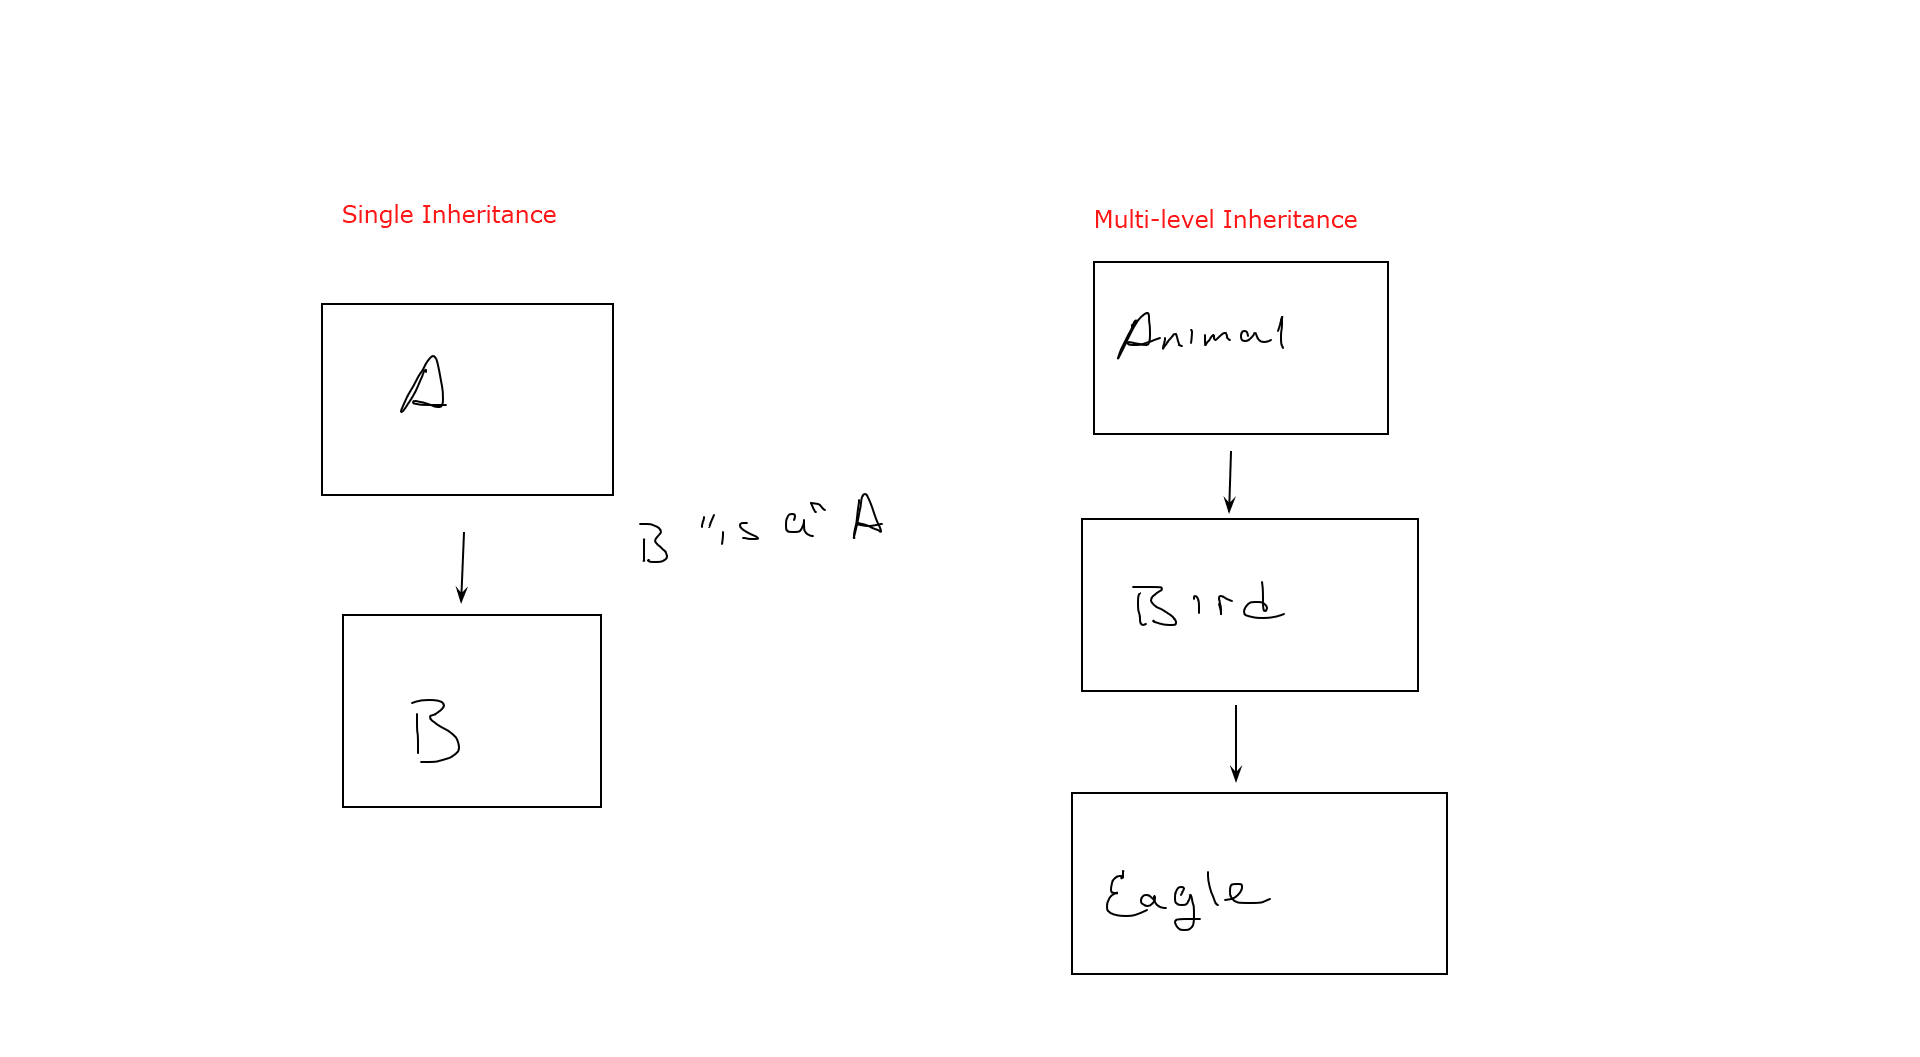 Single Inheritance
A
B "is a" A
B
Multi-level Inheritance
Animal
Bird
Eagle